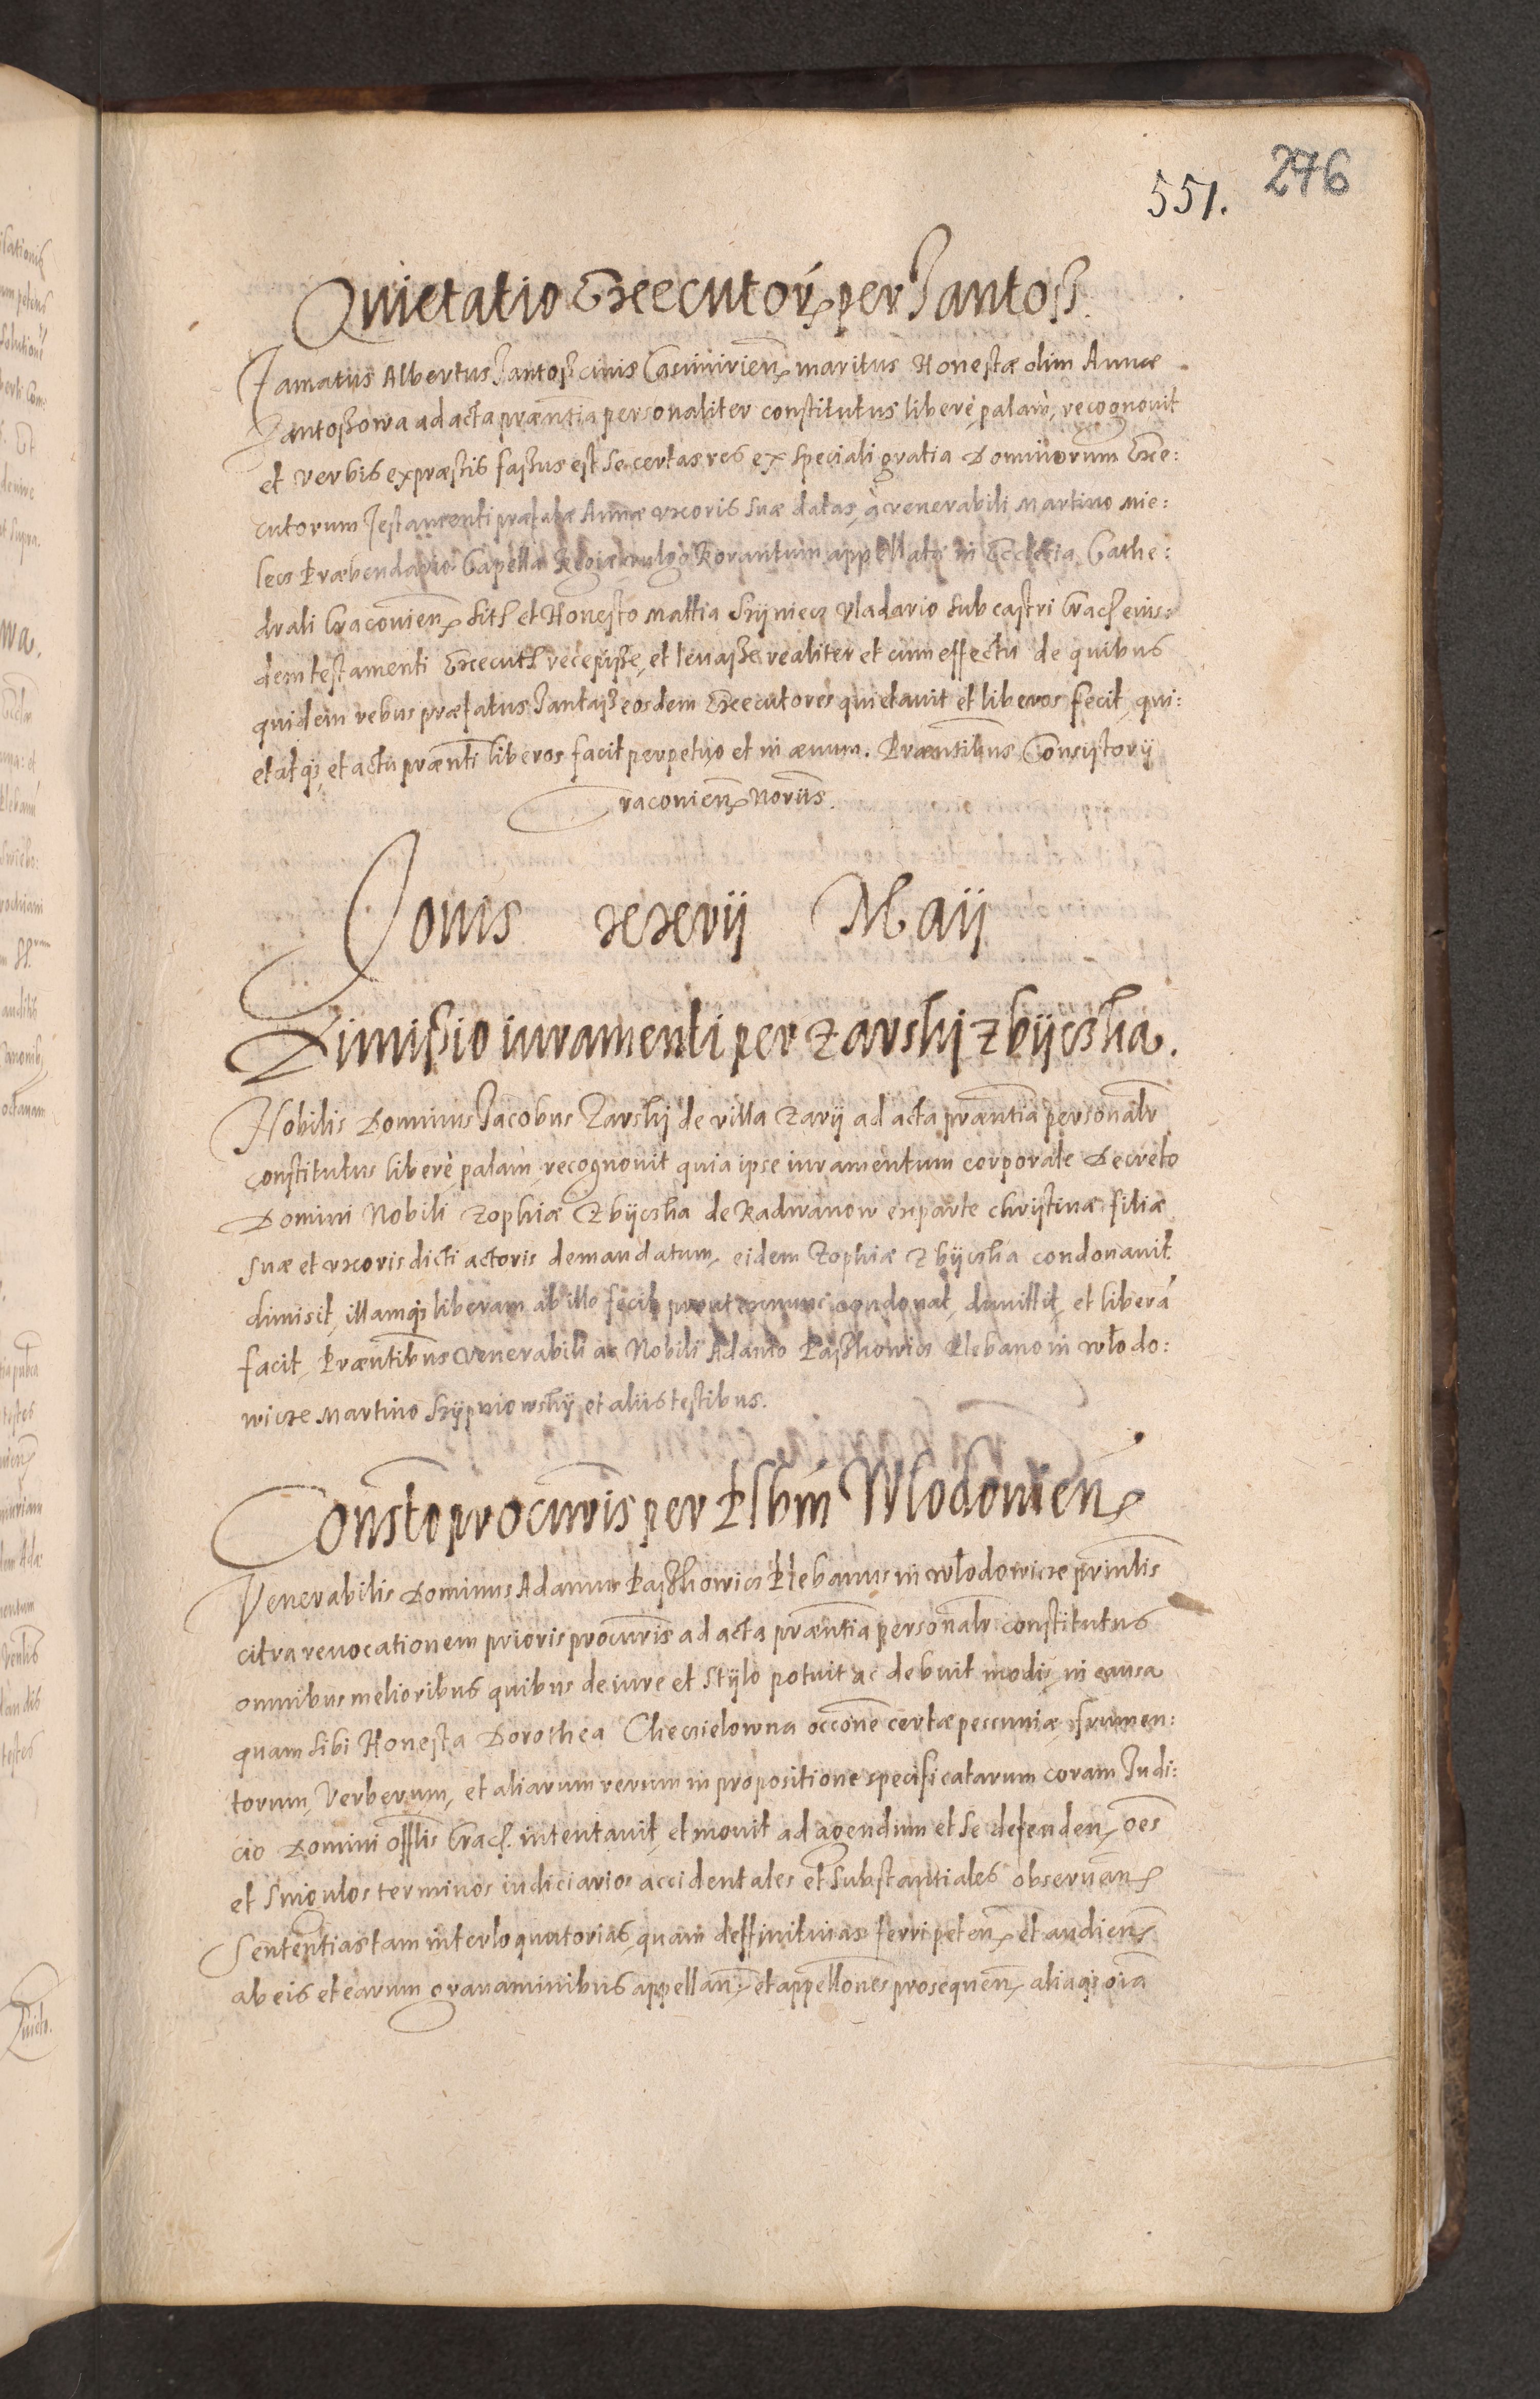 276
551.
Quietatio Executorꝝ per Jantosz.
Famatus Albertus Jantosz civis Casimirien̄ maritus Honestæ olim Annæ
Jantoszowa ad acta præn̄tia personaliter constitutus liberè, palam, recognovit
et verbis expræssis fassus est Se certas res ex speciali gratia Dominorum Exe:
cutorum Testamenti præfatæ Annæ uxoris suæ datas, à venerabili Martino Mie:
lecz Præbendario Capellæ Regiæ vulgo Rorantum appellatæ in Ecclesia Cathe:
drali Cracovien̄ sitꝭ et Honesto Mattia Szijniecz Vladario sub castri Cracꝭ eius:
dem testamenti Executꝭ recepisse, et levasse realiter et cum effectu de quibus
quidem rebus præfatus Jantosz eosdem Executores quietavit et liberos fecit, qui:
etatqꝫ, et actu præn̄ti liberos facit perpetuo et in ævum. Præsentibus Consistorij
Cracovien̄ Noriis.
Jovis xxvij Maij
Dimissio iuramenti per Zarskij Zbijczska.
Nobilis Dominus Jacobus Zarskij de villa Zarij ad acta præn̄tia personalr̄
constitutus liberè, palam, recognovit quia ipse iuramentum corporale Decreto
Domini Nobili Zophiæ Zbijczska de Radwanow ex parte Christinæ filiæ
suæ et uxoris dicti actoris demandatum, eidem Zophiæ Zbijczska condonavit
dimisit, illamqꝫ liberam ab illo fecit, prout ex nunc condonat, dimittit, et liberā
facit, Præn̄tibus Venerabili ac Nobili Adamo Paszkowicz Plebano in Włodo:
wicze Martino Szijpniowskij et aliis testibus.
Constō procuris per Plbm̄ Wlodovien̄
Venerabilis Dominus Adamus Paszkowicz Plebanus in Włodowicze prin̄lis
citra revocationem prioris procuris̄ ad acta præn̄tia personalr̄ constitutus
omnibus melioribus quibus de iure et stijlo potuit ac debuit modis, in causa
quam sibi Honesta Dorothea Checzielowna occōne certæ pecuniæ, frumen:
torum, Verberum, et aliarum rerum in propositione specificatarum coram Judi:
cio Domini Offlis̄ Cracꝭ. intentavit, et movit ad agendum et se defenden̄, oēs
et Singulos terminos iudiciarios accidentales et substantiales observan̄
Sententias tam interloquutorias, quam deffinitivas ferri peten̄, et audien̄
ab eis et earum gravaminibus appellan̄, et appellōnes prosequen̄, aliaqꝫ oīa